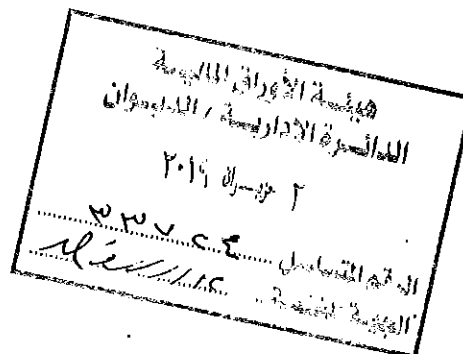 هيئة الأوراق المالية
الدائرة الإدارية / الديوان
٢ حزيران ٢٠١٩
الرقم المتسلسل
الجهة المختصة